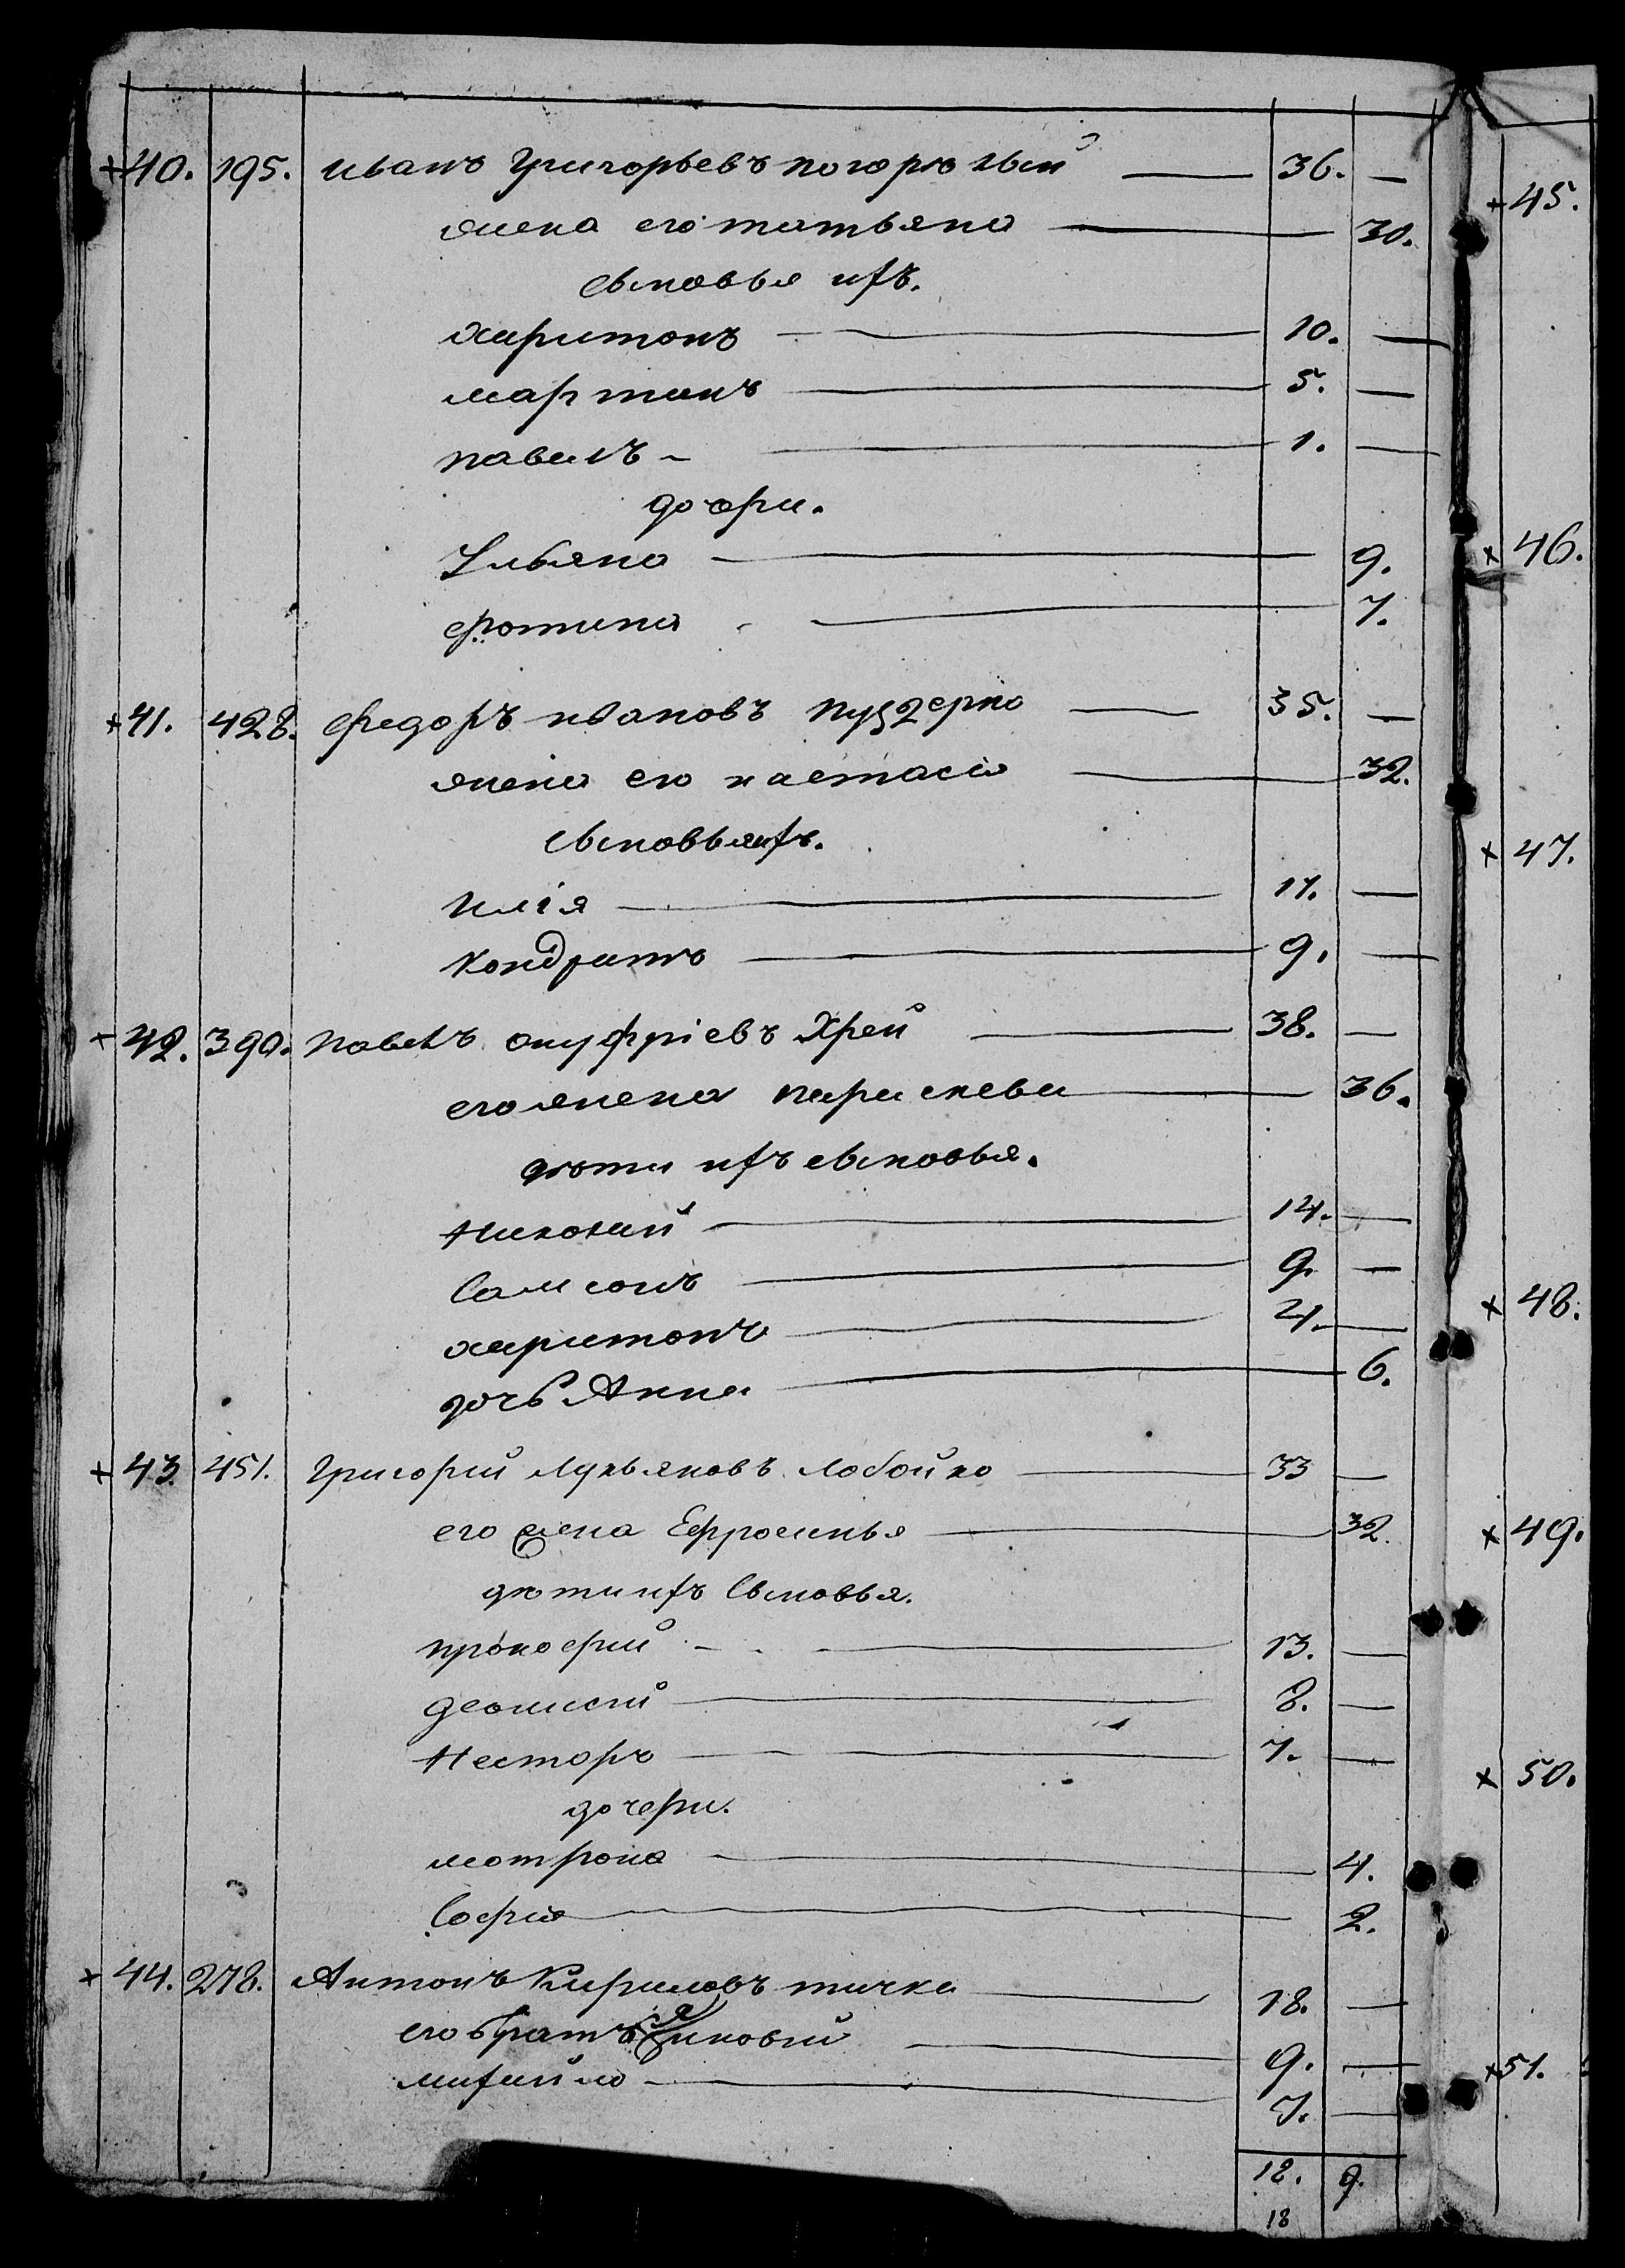 +40. 195. иванъ Григорьевъ погорѣлый — 36. —
жена его татьяна — 30.
сыновья ихъ.
харитонъ — 10. —
мартинъ — 5. —
павелъ — 1. —
дочери.
Ульяна — 9.
фотина — 7.
+41. 428. федоръ ивановъ — 35. —
жена его настасія — 32.
сыновья ихъ.
илія — 17. —
кондратъ — 9. —
+42. 390. павелъ онуфріевъ Хрей — 38. —
его жена параскева — 36.
дѣти ихъ сыновья.
Николай — 14. —
Самсонъ — 9. —
харитонъ — 4. —
дочь Анна — 6.
+43. 451. Григорій лукьяновъ лобойко — 33 —
его жена Ефросинья — 32.
дѣти ихъ Сыновья.
прокофій — 13. —
деонисій — 8. —
Несторъ — 7. —
дочери.
мотрона — 4.
Софія — 2.
+44. 278. Антонъ Кириловъ тичка — 18. —
его братъ — 9. —
михайло — 7. —
18. 9.
18
+45.
x46.
x47.
x48.
x49.
x50.
x51.